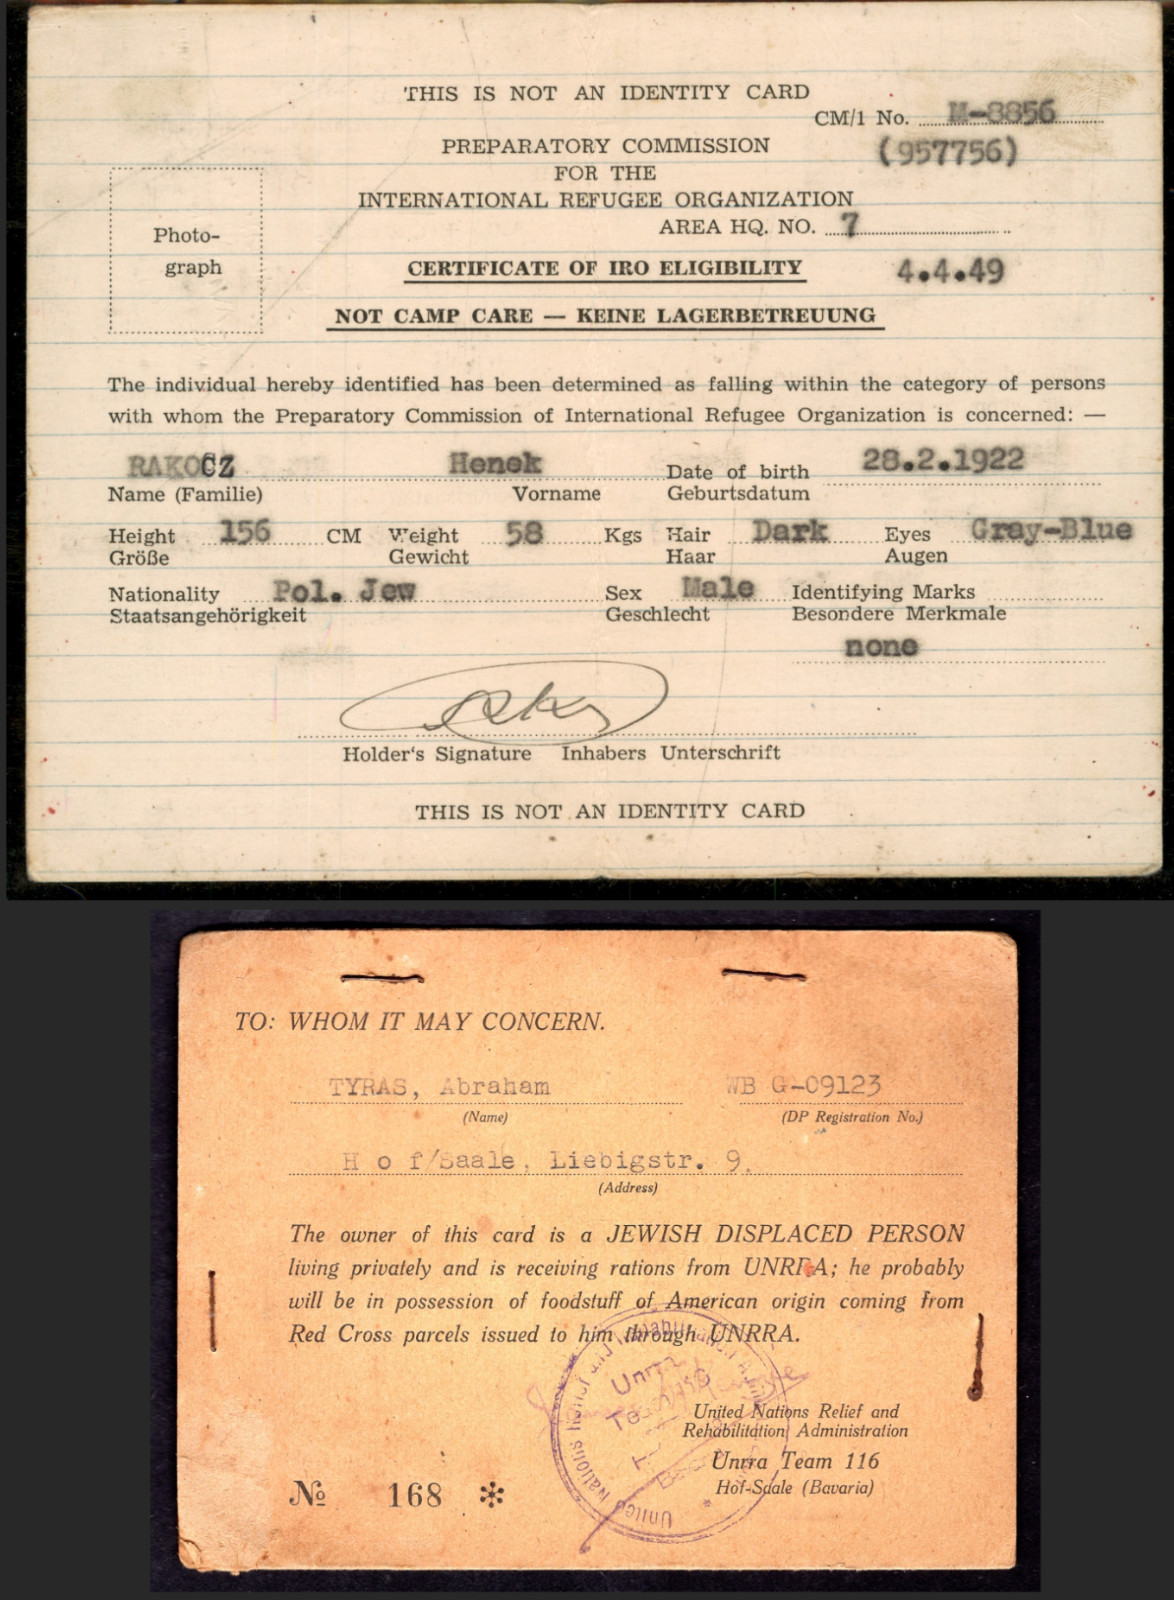 THIS IS NOT AN IDENTITY CARD
CM/1 No. M-8856
(957756)
PREPARATORY COMMISSION
FOR THE
INTERNATIONAL REFUGEE ORGANIZATION
AREA HQ. NO. 7
Photo-
graph
CERTIFICATE OF IRO ELIGIBILITY
4.4.49
NOT CAMP CARE — KEINE LAGERBETREUUNG
The individual hereby identified has been determined as falling within the category of persons
with whom the Preparatory Commission of International Refugee Organization is concerned: —
RAKOCZ Henek Date of birth 28.2.1922
Name (Familie) Vorname Geburtsdatum
Height 156 CM Weight 58 Kgs Hair Dark Eyes Gray-Blue
Größe Gewicht Haar Augen
Nationality Pol. Jew Sex Male Identifying Marks
Staatsangehörigkeit Geschlecht Besondere Merkmale
none
Holder's Signature Inhabers Unterschrift
THIS IS NOT AN IDENTITY CARD
TO: WHOM IT MAY CONCERN.
TYRAS, Abraham WB G-09123
(Name) (DP Registration No.)
H o f/Saale, Liebigstr. 9.
(Address)
The owner of this card is a JEWISH DISPLACED PERSON
living privately and is receiving rations from UNRRA; he probably
will be in possession of foodstuff of American origin coming from
Red Cross parcels issued to him through UNRRA.
Unrra
United Nations
United Nations Relief and
Rehabilitation Administration
Unrra Team 116
Hof-Saale (Bavaria)
№ 168 *